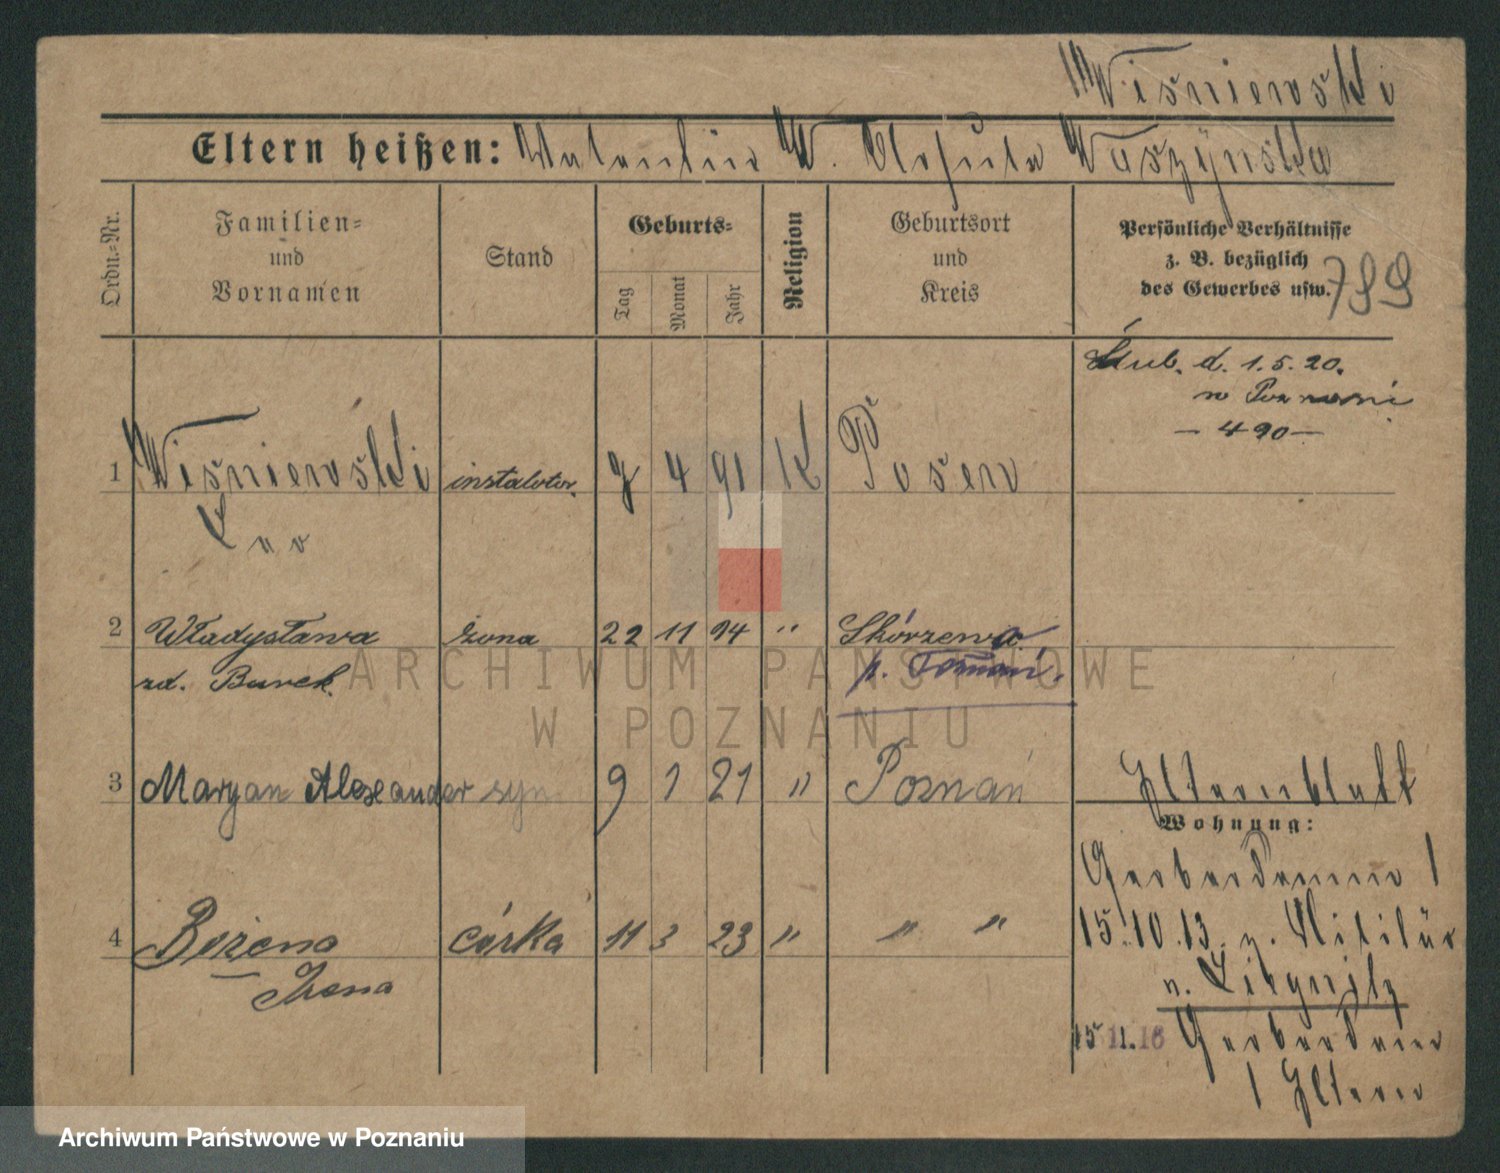 Wiśniewski
Eltern heißen: Valentin W. Ursula Waszyńska
Ordn.-Nr.
Familien-
und
Vornamen
Stand
Geburts-
Tag
Monat
Jahr
Religion
Geburtsort
und
Kreis
Persönliche Verhältnisse
z. B. bezüglich
des Gewerbes usw.
789
Ślub. d. 1.5.20.
w Poznaniu
- 490 -
1 Wiśniewski instalator. 9 4 91 K Posen
Leo
2 Władysława żona 22 11 94 " Skórzewo
zd. Burek p. Poznań.
3 Maryan Alexander syn 9 1 21 " Poznań
Elternblatt
Wohnung:
Gerberdamm 1
4 Bożena córka 11 3 23 " " "
Irena
15.10.13. z. Militär
n. Liegnitz
15 11.18 Gerberdamm
1 Eltern
ARCHIWUM PAŃSTWOWE
W POZNANIU
Archiwum Państwowe w Poznaniu